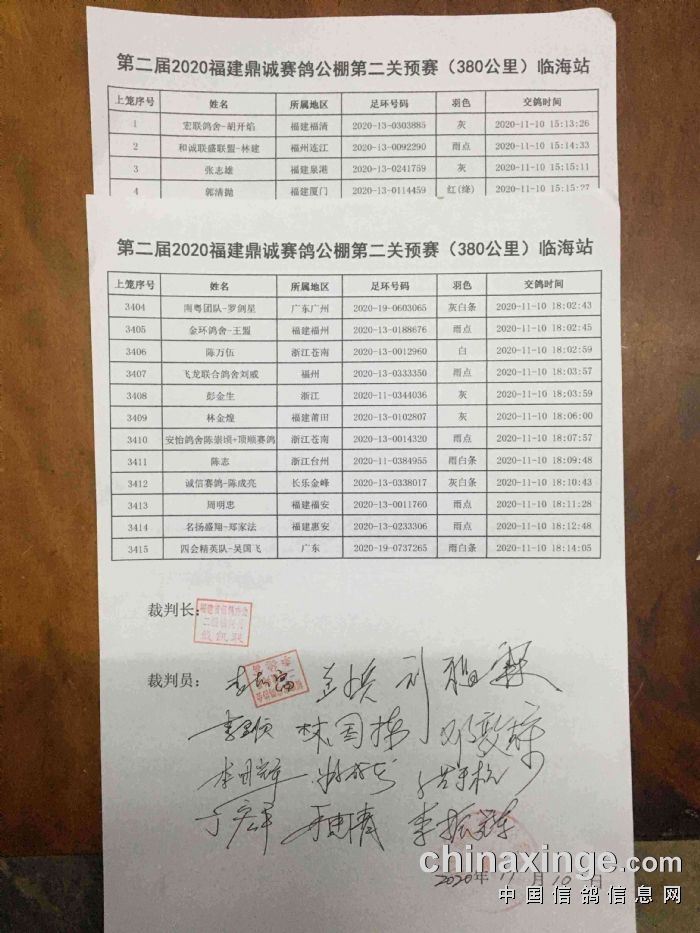 第二届2020福建鼎诚赛鸽公棚第二关预赛（380公里）临海站
上笼序号 姓名 所属地区 足环号码 羽色 交鸽时间
1 宏联鸽舍-胡开焰 福建福清 2020-13-0303885 灰 2020-11-10 15:13:26
2 和诚联盛联盟-林建 福州连江 2020-13-0092290 雨点 2020-11-10 15:14:33
3 张志雄 福建泉港 2020-13-0241759 灰 2020-11-10 15:15:11
4 郭清抛 福建厦门 2020-13-0114459 红(绛) 2020-11-10 15:15:27
第二届2020福建鼎诚赛鸽公棚第二关预赛（380公里）临海站
上笼序号 姓名 所属地区 足环号码 羽色 交鸽时间
3404 南粤团队-罗剑星 广东广州 2020-19-0603065 灰白条 2020-11-10 18:02:43
3405 金环鸽舍-王盟 福建福州 2020-13-0188676 雨点 2020-11-10 18:02:45
3406 陈万伍 浙江苍南 2020-13-0012960 白 2020-11-10 18:02:59
3407 飞龙联合鸽舍刘威 福州 2020-13-0333350 雨点 2020-11-10 18:03:57
3408 彭金生 浙江 2020-11-0344036 灰 2020-11-10 18:03:59
3409 林金煌 福建莆田 2020-13-0102807 灰 2020-11-10 18:06:00
3410 安怡鸽舍陈崇顷+顶顺赛鸽 浙江苍南 2020-13-0014320 雨点 2020-11-10 18:07:57
3411 陈志 浙江台州 2020-11-0384955 雨白条 2020-11-10 18:09:48
3412 诚信赛鸽-陈成亮 长乐金峰 2020-13-0338017 灰白条 2020-11-10 18:10:43
3413 周明忠 福建福安 2020-13-0011760 雨点 2020-11-10 18:11:28
3414 名扬盛翔-郑家法 福建惠安 2020-13-0233306 雨点 2020-11-10 18:12:48
3415 四会精英队-吴国飞 广东 2020-19-0737265 雨白条 2020-11-10 18:14:05
裁判长：
裁判员：
林国栋
李明辉
丁宏军 李振辉
2020年11月10日
chinaxinge.com
中国信鸽信息网